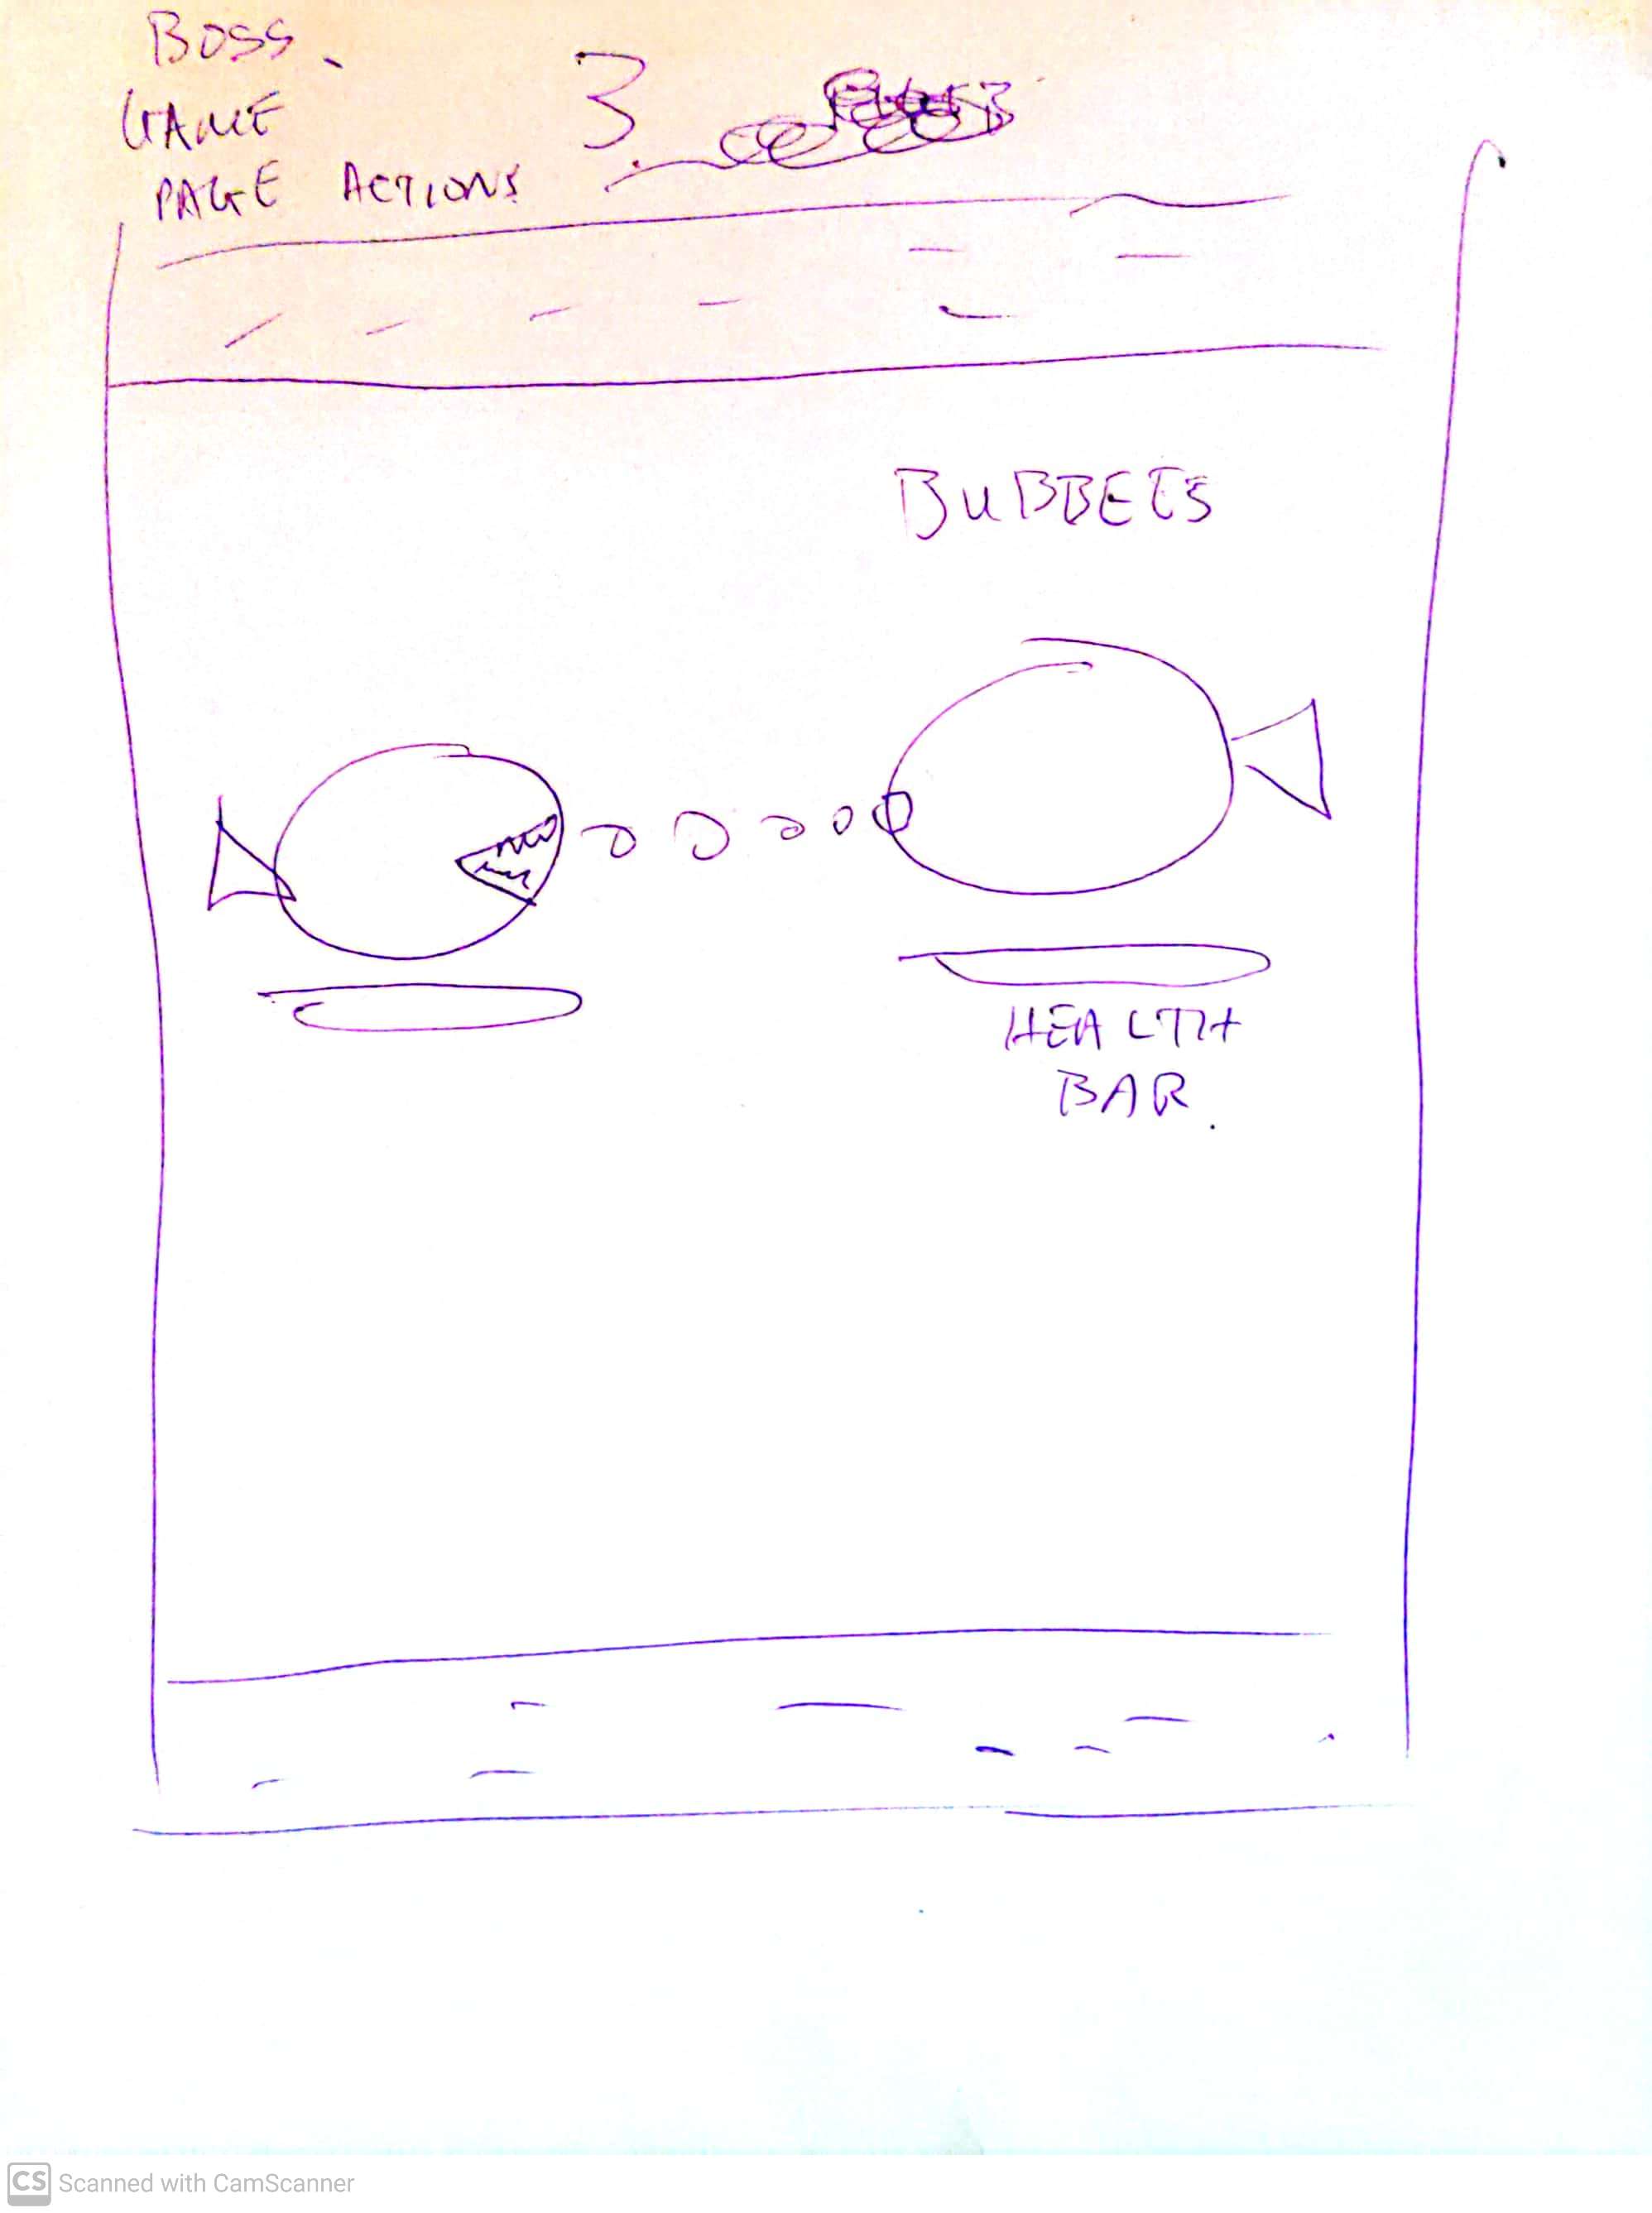 BOSS
GAME
PAGE ACTIONS
3
BUBBEES
HEALTH
BAR.
CS Scanned with CamScanner